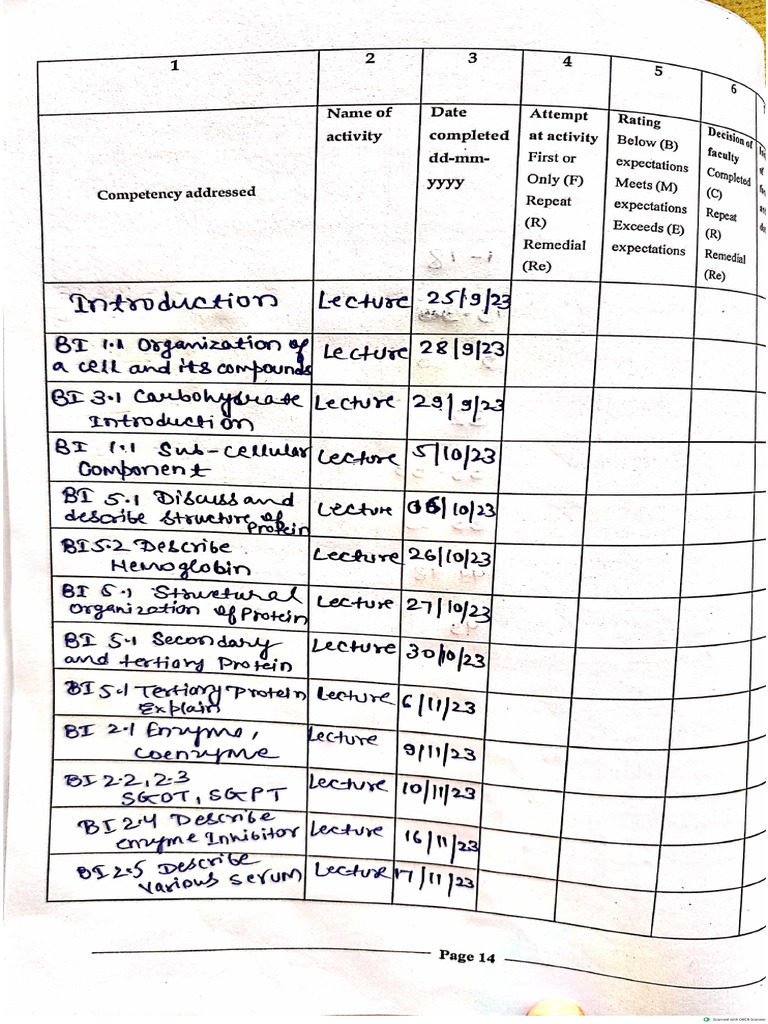 1 2 3 4 5 6
Competency addressed
Name of
activity
Date
completed
dd-mm-
yyyy
Attempt
at activity
First or
Only (F)
Repeat
(R)
Remedial
(Re)
Rating
Below (B)
expectations
Meets (M)
expectations
Exceeds (E)
expectations
Decision of
faculty
Completed
(C)
Repeat
(R)
Remedial
(Re)
Introduction Lecture 25/9/23
BI 1.1 Organization of
a cell and its compounds Lecture 28/9/23
BI 3.1 Carbohydrate
Introduction Lecture 29/9/23
BI 1.1 Sub-cellular
Component Lecture 5/10/23
BI 5.1 Discuss and
describe structure of
Protein Lecture 06/10/23
BI 5.2 Describe
Hemoglobin Lecture 26/10/23
BI 5.1 Structural
Organization of Protein Lecture 27/10/23
BI 5.1 Secondary
and tertiary Protein Lecture 30/10/23
BI 5.1 Tertiary Protein
Explain Lecture 6/11/23
BI 2.1 Enzyme,
Coenzyme Lecture 9/11/23
BI 2.2, 2.3
SGOT, SGPT Lecture 10/11/23
BI 2.4 Describe
enzyme Inhibitor Lecture 16/11/23
BI 2.5 Describe
various serum Lecture 17/11/23
Page 14
Scanned with OKEN Scanner